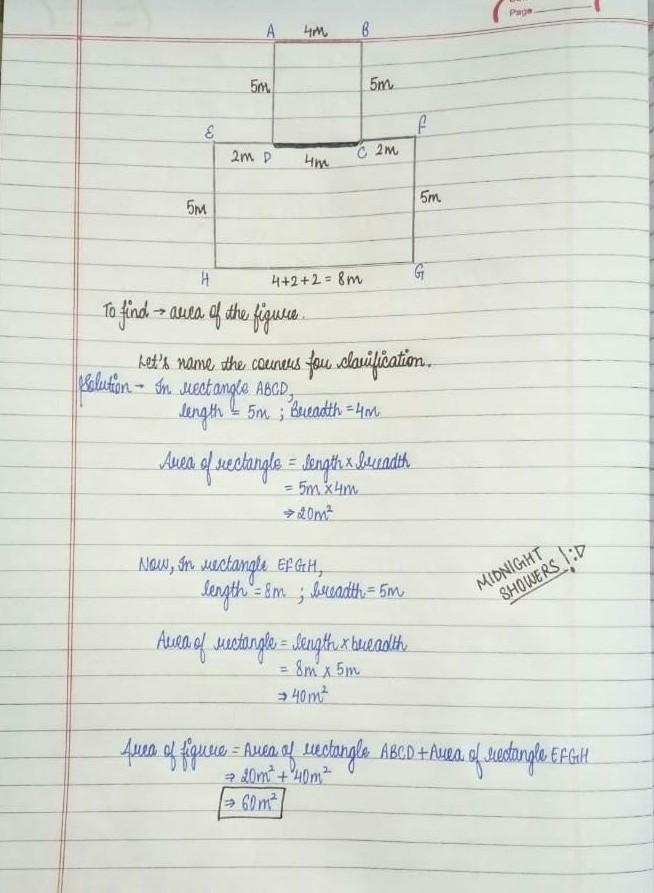 Page
A 4m B
5m 5m
E F
2m D 4m C 2m
5m 5m
H 4+2+2 = 8m G
To find → area of the figure.
Let's name the corners for clarification.
Solution - In rectangle ABCD,
length = 5m ; Breadth = 4m
Area of rectangle = length x breadth
= 5m x 4m
⇒ 20m²
Now, In rectangle EFGH,
length = 8m ; breadth = 5m
MIDNIGHT
SHOWERS! :D
Area of rectangle = length x breadth
= 8m x 5m
⇒ 40m²
Area of figure = Area of rectangle ABCD + Area of rectangle EFGH
⇒ 20m² + 40m²
⇒ 60m²